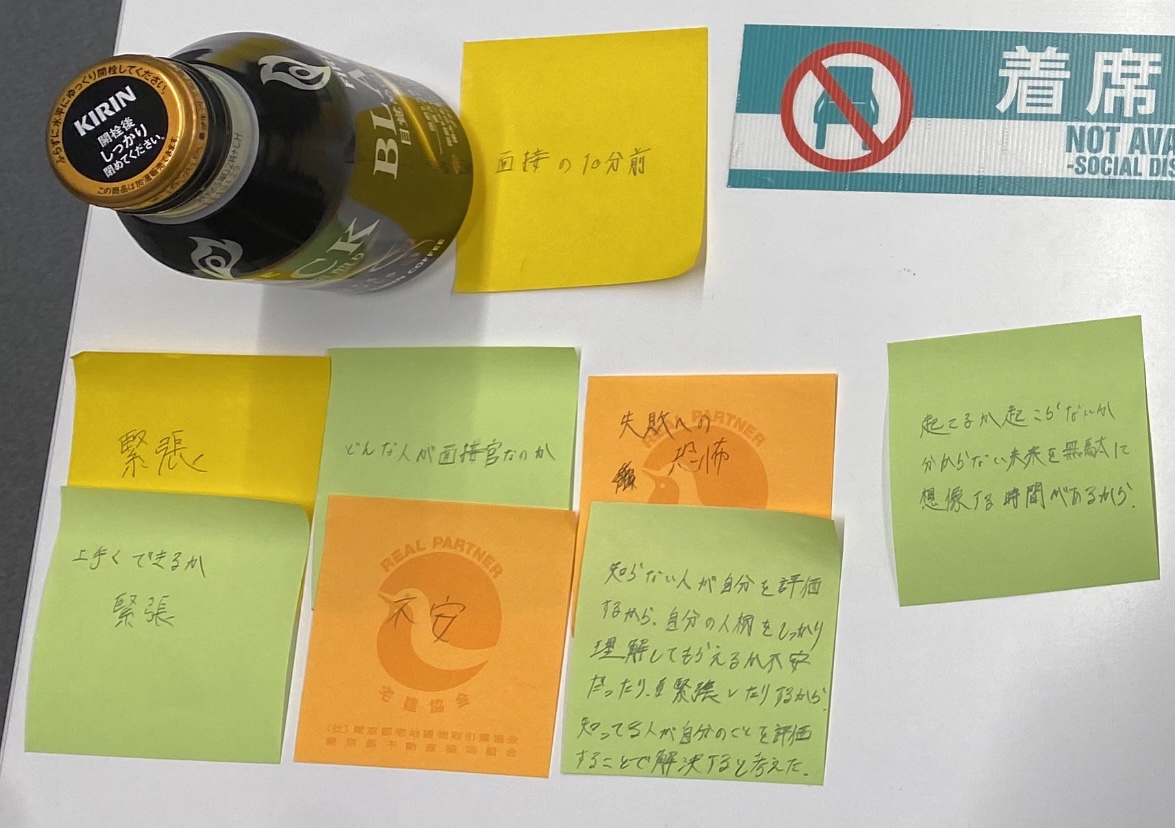 ぶらずに水平にゆっくり開栓してください。
KIRIN
開栓後
しっかり
閉めてください。
BL
CK
COFFEE
面接の10分前
着席
NOT AVA
-SOCIAL DIS
緊張
どんな人が面接官なのか
失敗への
恐怖
REAL PARTNER
起こるか起こらないか
分からない未来を無駄に
想像する時間があるから.
上手くできるか
緊張
REAL PARTNER
不安
宅建協会
(社)東京都宅地建物取引業協会
東京都不動産協同組合
知らない人が自分を評価
するから、自分の人柄をしっかり
理解してもらえるか不安
だったり、緊張したりするから.
知ってる人が自分のことを評価
することで解決すると考えた.